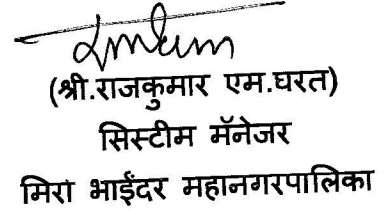 (श्री.राजकुमार एम.घरत)
सिस्टीम मॅनेजर
मिरा भाईंदर महानगरपालिका